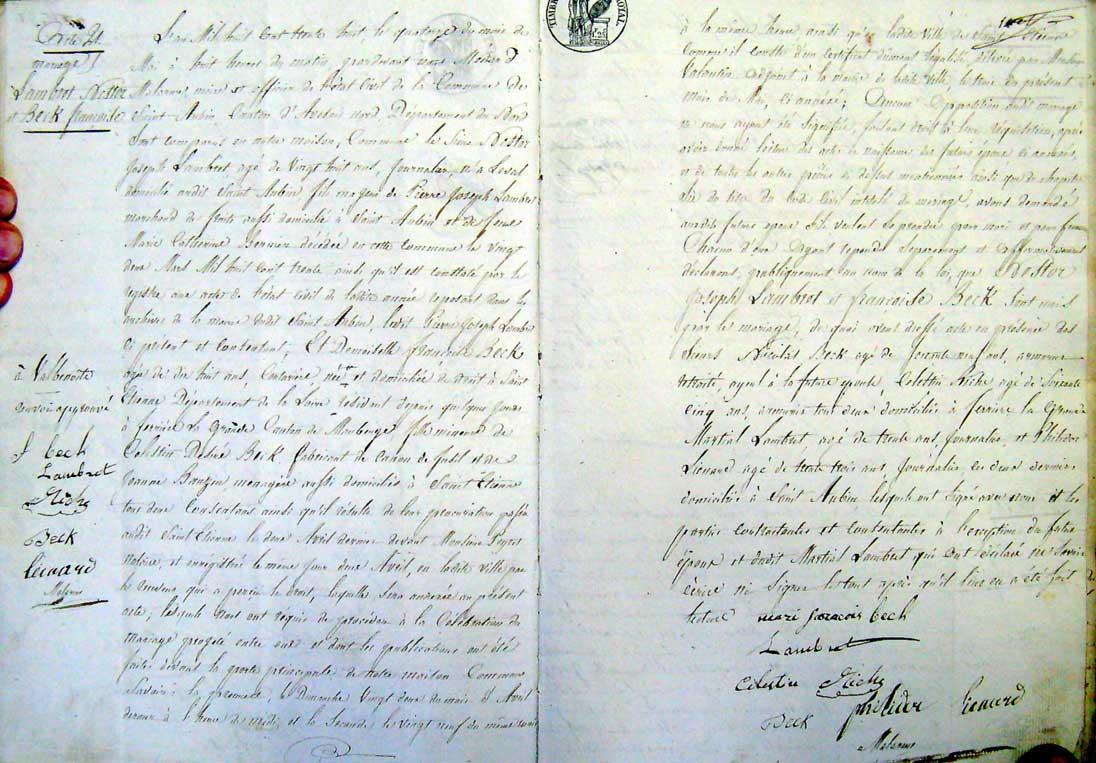 Acte 21.
mariage
Lambret Nestor
et Beck françoise
L'an Mil huit Cent trente huit le quatorze du mois de
Mai à huit heures du matin, pardevant nous
Malesme maire et officier de l'état Civil de la Commune de
Saint Aubin Canton d'Avesne nord, Département du Nord
Sont comparus en notre maison Commune le Sieur Nestor
Joseph Lambret agé de Vingt huit ans, Journalier, né à
domicilié audit Saint Aubin fils majeur de Pierre Joseph Lambret
marchand de fruits aussi domicilié à Saint Aubin et de feue
Marie Catherine décédée en cette Commune le Vingt
deux Mars Mil huit Cent trente ainsi qu'il est constaté par le
registre aux actes de l'état civil de ladite année reposant dans les
archives de la mairie dudit Saint Aubin, ledit Pierre Joseph Lambret
Ci présent et Consentant; Et Demoiselle françoise Beck
agée de dix huit ans, Couturière née et domiciliée de droit à Saint
Etienne Département de la Loire résident depuis quelque jours
à ferrière La Grande Canton de Maubeuge fille mineure de
Celestin Désiré Beck, fabricant de Canon de fusil et de
Jeanne ménagère aussi domiciliés à Saint Etienne
tout deux Consentans ainsi qu'il résulte de leur procuration passée
audit Saint Etienne le deux Avril dernier devant
Notaire, et enregistrée le même jour deux Avril, en ladite Ville par
le receveur qui a perçu le droit, laquelle sera annexée au présent
acte; lesquels nous ont réquis de procéder à la Célébration du
mariage projeté entre eux et dont les publications ont été
faites devant la porte principale de notre maison Commune
Savoir: la première, le Dimanche Vingt deux du mois d'Avril
dernier à l'heure de midi, et la Seconde le Vingt neuf du même mois
à Valbenoite
renvoi approuvé
f beck
Lambret
Riche
Beck
Liénard
Malesme
à la même heure ainsi qu'à ladite Ville de Saint Etienne
Comme il conste d'un certificat dûment légalisé, délivré par Monsieur
Valentin adjoint à la mairie de ladite Ville, la date du présent
Mois de Mai, Ci annexé; Aucune Opposition audit mariage
ne nous ayant été Signifiée, faisant droit à leur réquisition, après
avoir donné lecture des actes de naissance des futurs époux Ci annexés,
et de toutes les autres pièces ci dessus mentionnées ainsi que du chapitre
Six du titre du Code Civil intitulé du mariage, avons demandé
auxdits futurs époux S'ils veulent se prendre pour mari et pour femme
Chacun d'eux ayant répondu Séparément et affirmativement
déclarons, publiquement au nom de la loi, que Nestor
Joseph Lambret et françoise Beck Sont unis
par le mariage, de quoi avons dressé acte en présence des
Sieurs Nicolas Beck agé de Soixante neuf ans, armurier
retraité, ayeul à la future épouse, Celestin Riche agé de Soixante
Cinq ans, armurier tout deux domiciliés à ferrière la Grande
Martial Lambret agé de trente ans, Journalier, et Philidor
Liénard agé de trente trois ans, Journalier, les deux derniers
domiciliés à Saint Aubin lesquels ont Signé avec nous et les
parties Contractantes et Consentantes à l'exception du futur
époux et dudit Martial Lambret qui ont déclaré ne Savoir
écrire ni Signer le tout après qu'il leur en a été fait
lecture
beck
Lambret
Celestin Riche
Beck philidor Liénard
Malesme